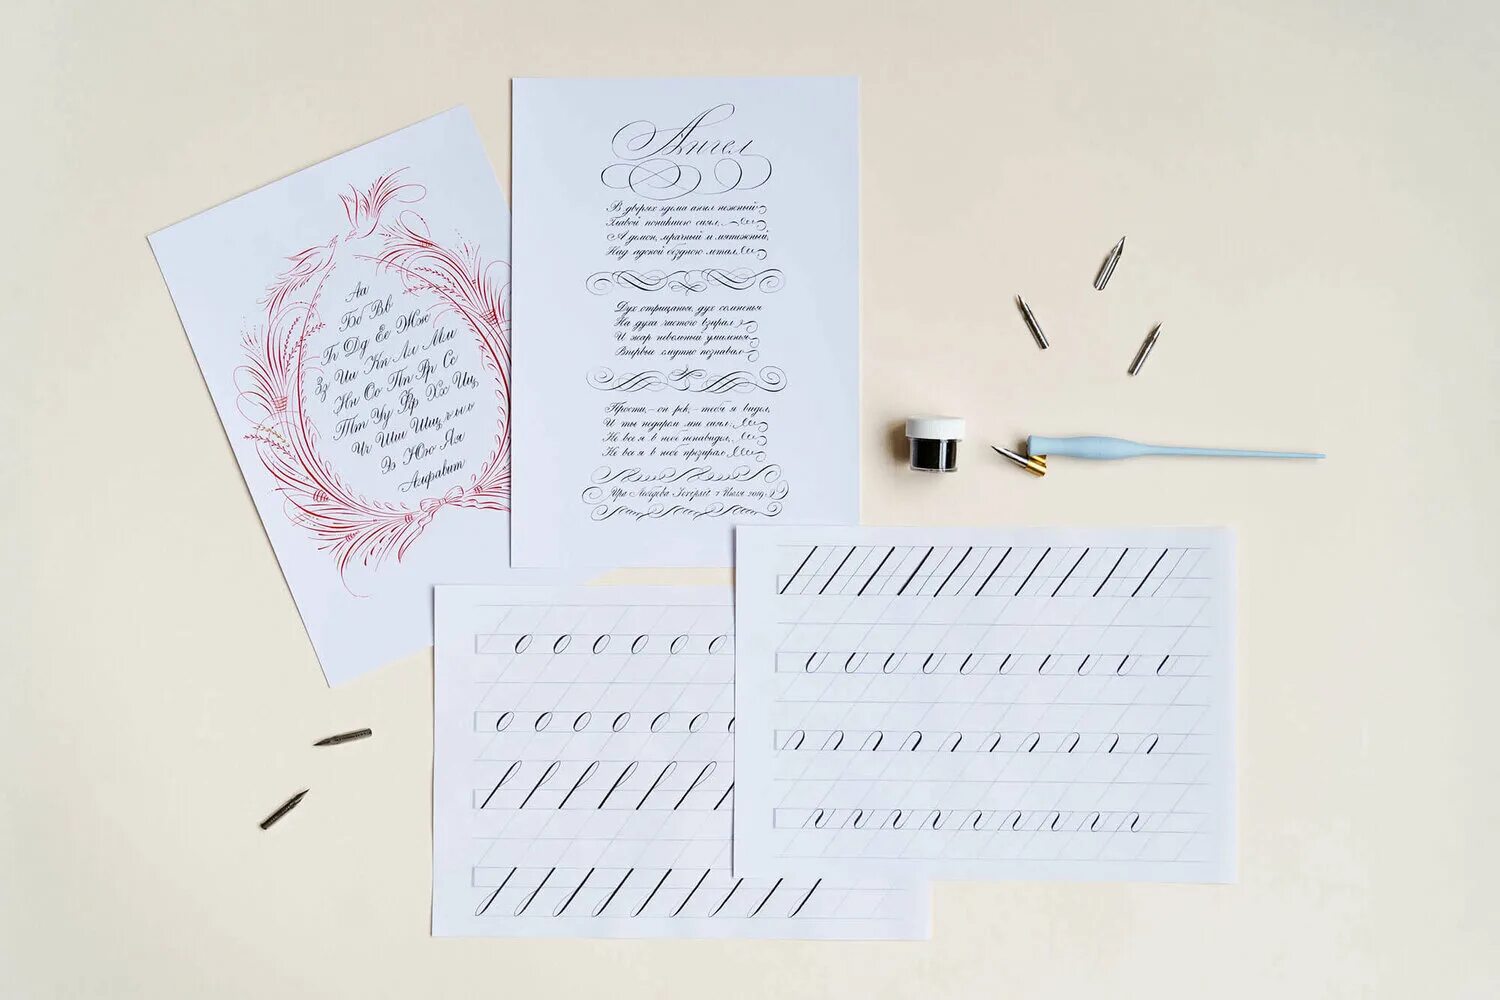 Аа
Бб Вв
Гг Дд Ее Жж
Зз Ии Кк Лл Мм
Нн Оо Пп Рр Сс
Тт Уу Фф Хх Цц
Чч Шш Щщ ъ ы ь
Ээ Юю Яя
Алфавит
Ангел
В дверях эдема ангел нежный
Главой поникшею сиял,
А демон, мрачный и мятежный,
Над адской бездною летал.
Дух отрицанья, дух сомненья
На духа чистого взирал
И жар невольный умиленья
Впервые смутно познавал.
Прости, – он рек, – тебя я видел,
И ты недаром мне сиял.
Не все я в небе ненавидел,
Не все я в небе презирал.
Ира 7 Июля 2019